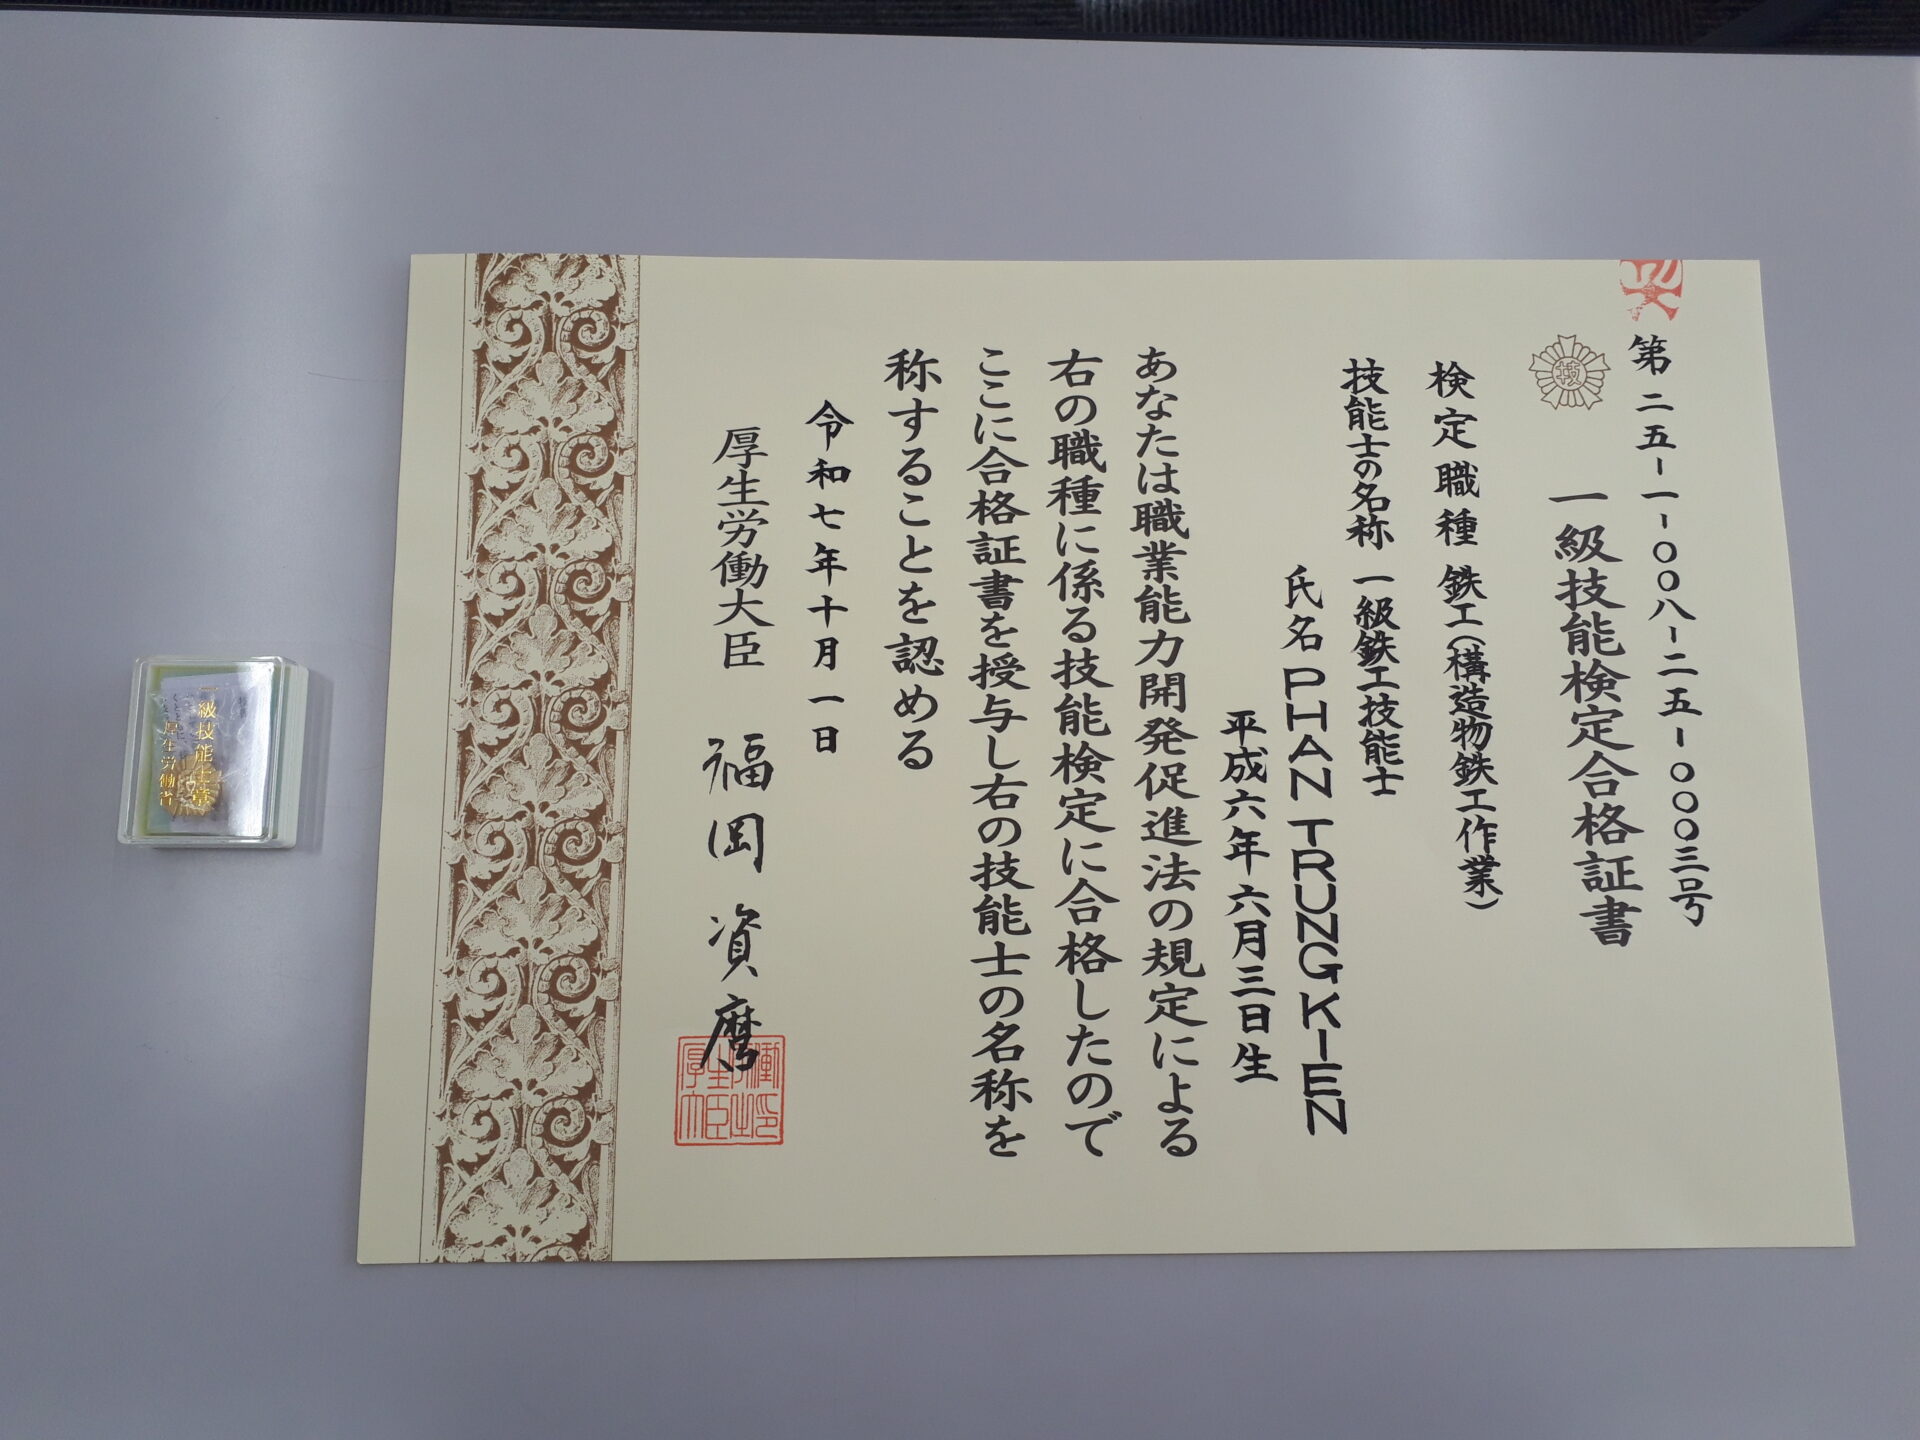 第二五-一-〇〇八-二五-〇〇〇三号
技
一級技能検定合格証書
検定職種 鉄工(構造物鉄工作業)
技能士の名称 一級鉄工技能士
氏名 PHAN TRUNG KIEN
平成六年六月三日生
あなたは職業能力開発促進法の規定による
右の職種に係る技能検定に合格したので
ここに合格証書を授与し右の技能士の名称を
称することを認める
令和七年十月一日
厚生労働大臣 福岡資麿
厚生労働大臣之印
一級技能士章
厚生労働省